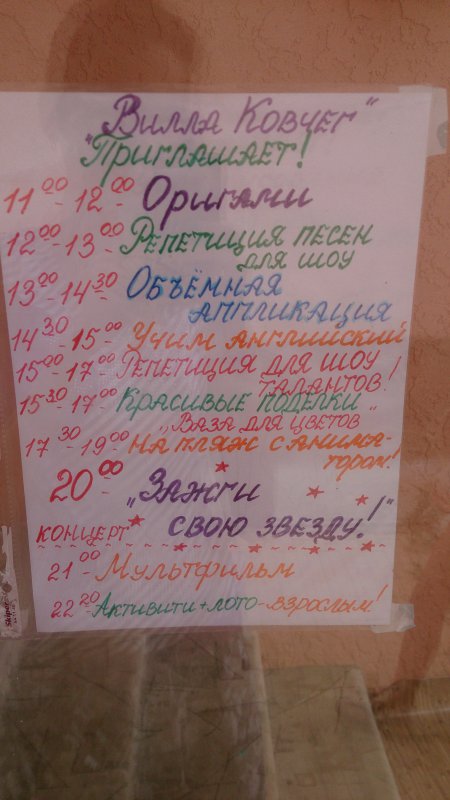 „Вилла Ковчег"
Приглашает!
11⁰⁰- 12⁰⁰ Оригами
12⁰⁰- 13⁰⁰ Репетиция песен
для шоу
13⁰⁰- 14³⁰ Объёмная
аппликация
14³⁰- 15⁰⁰ Учим английский
15⁰⁰- 17⁰⁰ Репетиция для шоу
талантов!
15³⁰- 17⁰⁰ Красивые поделки
„Ваза для цветов"
17³⁰- 19⁰⁰ На пляж с анима-
тором!
20⁰⁰ „Зажги
концерт свою звезду!"
21⁰⁰- Мультфильм
22²⁰- Активити + лото - взрослым!